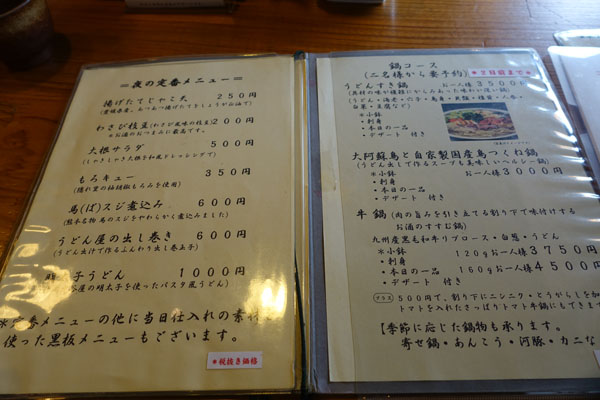 ＝夜の定番メニュー＝
揚げたてじゃこ天 250円
わさび枝豆(わさび風味の枝豆) 200円
※お酒のおつまみに最高です。
大根サラダ 500円
(しゃきしゃき大根を和風ドレッシングで)
もろキュー 350円
(隠れ里の柚胡椒もろみを使用)
馬(ば)スジ煮込み 600円
(熊本名物 馬のスジをやわらかく煮込みました)
うどん屋の出し巻き 600円
(うどん出汁で作るふんわり出し巻玉子)
子うどん 1000円
屋の明太子を使ったパスタ風うどん)
※定番メニューの他に当日仕入れの素材
使った黒板メニューもございます。
＊税抜き価格
鍋コース
(二名様から要予約)
うどんすき鍋 お一人様 3500
・小鉢
・刺身
・本日の一品
・デザート 付き
大阿蘇鳥と自家製国産鳥つくね鍋
(うどん出しで作るスープも美味しいヘルシー鍋)
※小鉢 お一人様 3000円
・刺身
・本日の一品
・デザート 付き
牛鍋(肉の旨みを引き立てる割り下で味付けする
お酒のすすむ鍋)
九州産黒毛和牛リブロース・白葱・うどん
※小鉢 120gお一人様 3750円
・刺身
・本日の一品 160gお一人様 4500
・デザート 付き
プラス 500円で、割り下にニンニク・とうがらしを加
トマトを入れたさっぱりトマト牛鍋にもできます
【季節に応じた鍋物も承ります。
寄せ鍋・あんこう・河豚・カニな